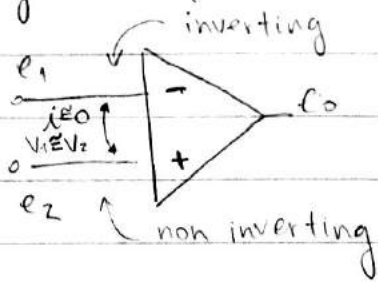 inverting
e₁
-
i≅0
V₁≅V₂
eo
+
e₂
non inverting